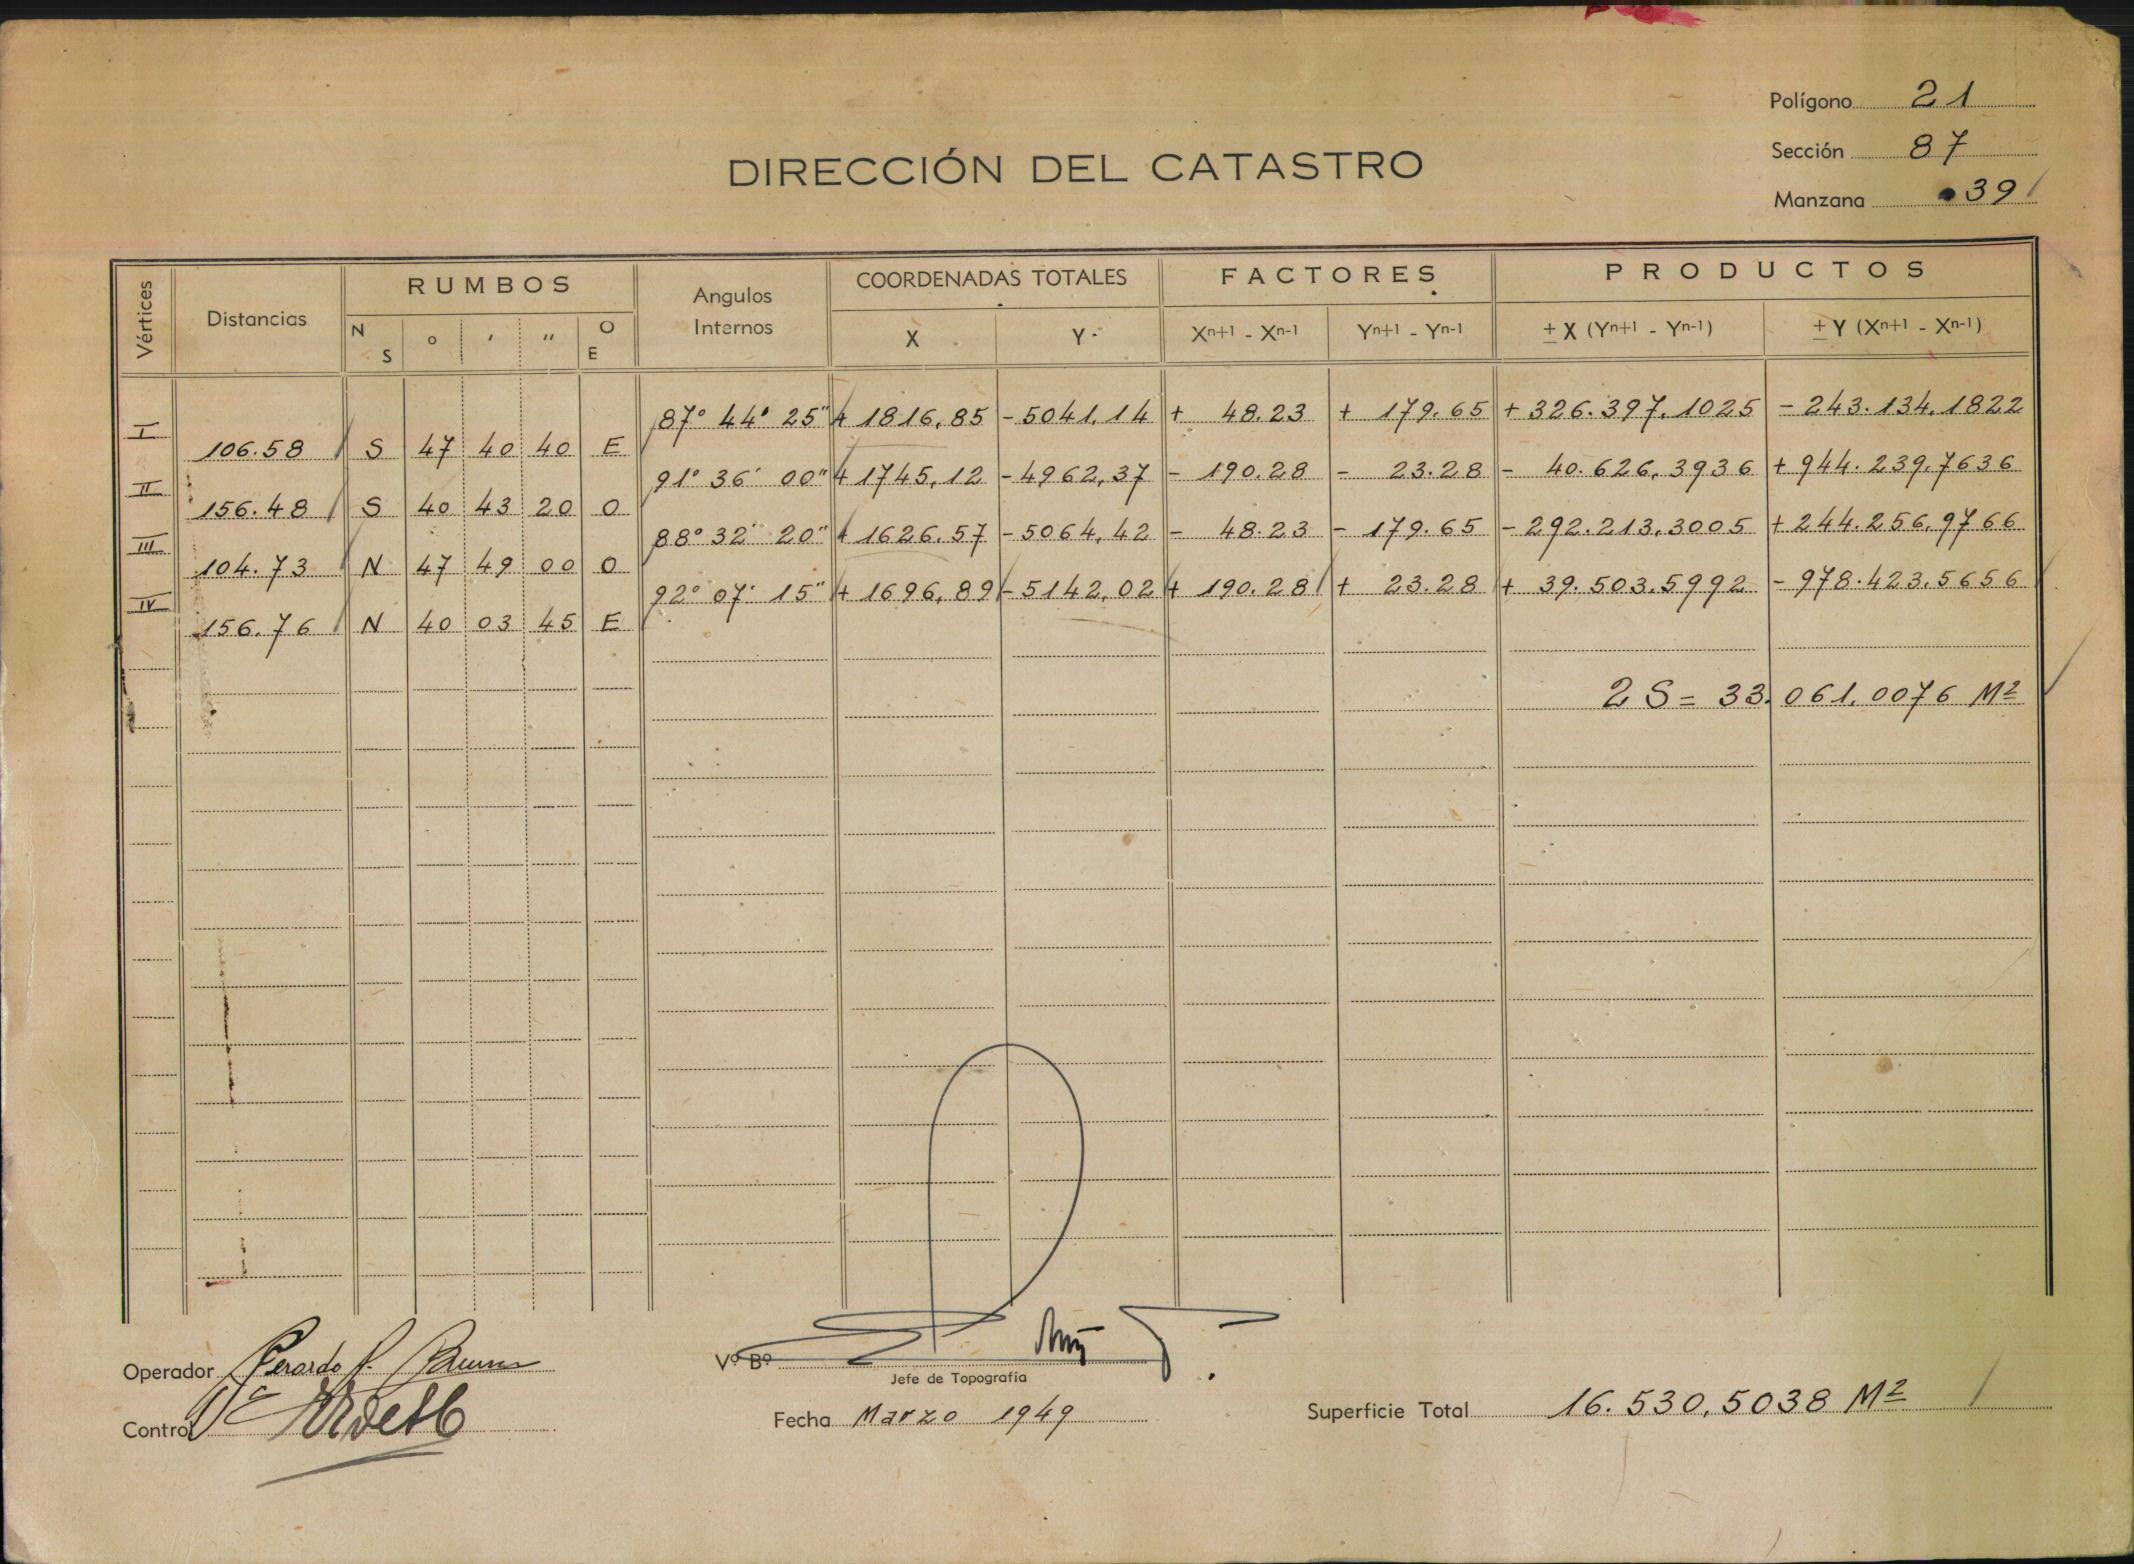 Polígono 21
Sección 87
Manzana 39
DIRECCIÓN DEL CATASTRO
Vértices Distancias RUMBOS Angulos Internos COORDENADAS TOTALES FACTORES PRODUCTOS
N S ° ' " O E X Y Xn+1 - Xn-1 Yn+1 - Yn-1 ± X (Yn+1 - Yn-1) ± Y (Xn+1 - Xn-1)
87° 44' 25" + 1816,85 - 5041.14 + 48.23 + 179.65 + 326.397,1025 - 243.134,1822
I 106.58 S 47 40 40 E
91° 36' 00" + 1745,12 - 4962,37 - 190.28 - 23.28 - 40.626,3936 + 944.239,7636
II 156.48 S 40 43 20 O
88° 32' 20" + 1626.57 - 5064,42 - 48.23 - 179.65 - 292.213,3005 + 244.256,9766
III 104.73 N 47 49 00 O
92° 07' 15" + 1696,89 - 5142,02 + 190.28 + 23.28 + 39.503.5992 - 978.423,5656
IV 156.76 N 40 03 45 E
2 S = 33.061,0076 M²
Operador Gerardo
Control
Vº Bº
Jefe de Topografía
Fecha Marzo 1949
Superficie Total 16.530,5038 M²